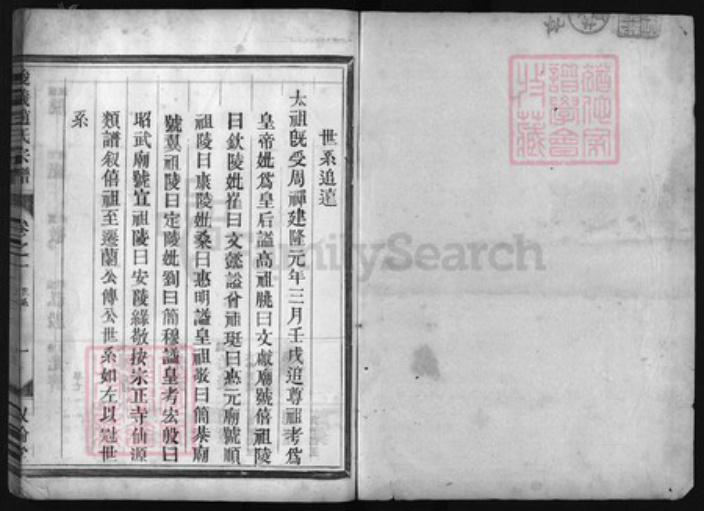 世系追遠
太祖旣受周禪建隆元年三月壬戌追尊祖考爲
皇帝妣爲皇后諡高祖朓曰文獻廟號僖祖陵
曰欽陵妣崔曰文懿諡曾祖珽曰惠元廟號順
祖陵曰康陵妣桑曰惠明諡皇祖敬曰簡恭廟
號翼祖陵曰定陵妣劉曰簡穆諡皇考宏殷曰
昭武廟號宣祖陵曰安陵緣敬按宗正寺仙源
類譜叙僖祖至遷蘭公傳公世系如左以冠世
系
趙氏宗譜
卷之一
世系
一
FamilySearch